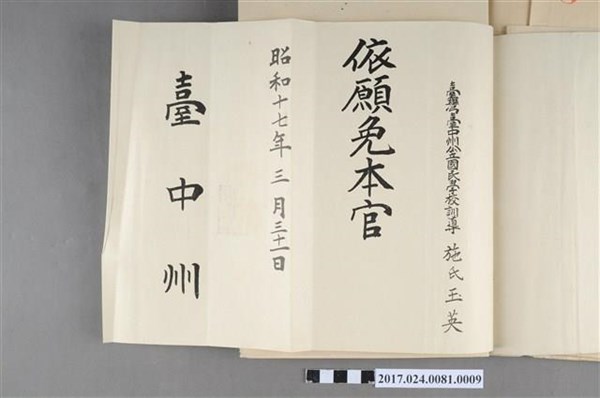 臺灣公立臺中州公立國民學校訓導 施氏玉英
依願免本官
昭和十七年三月三十一日
臺中州
2017.024.0081.0009